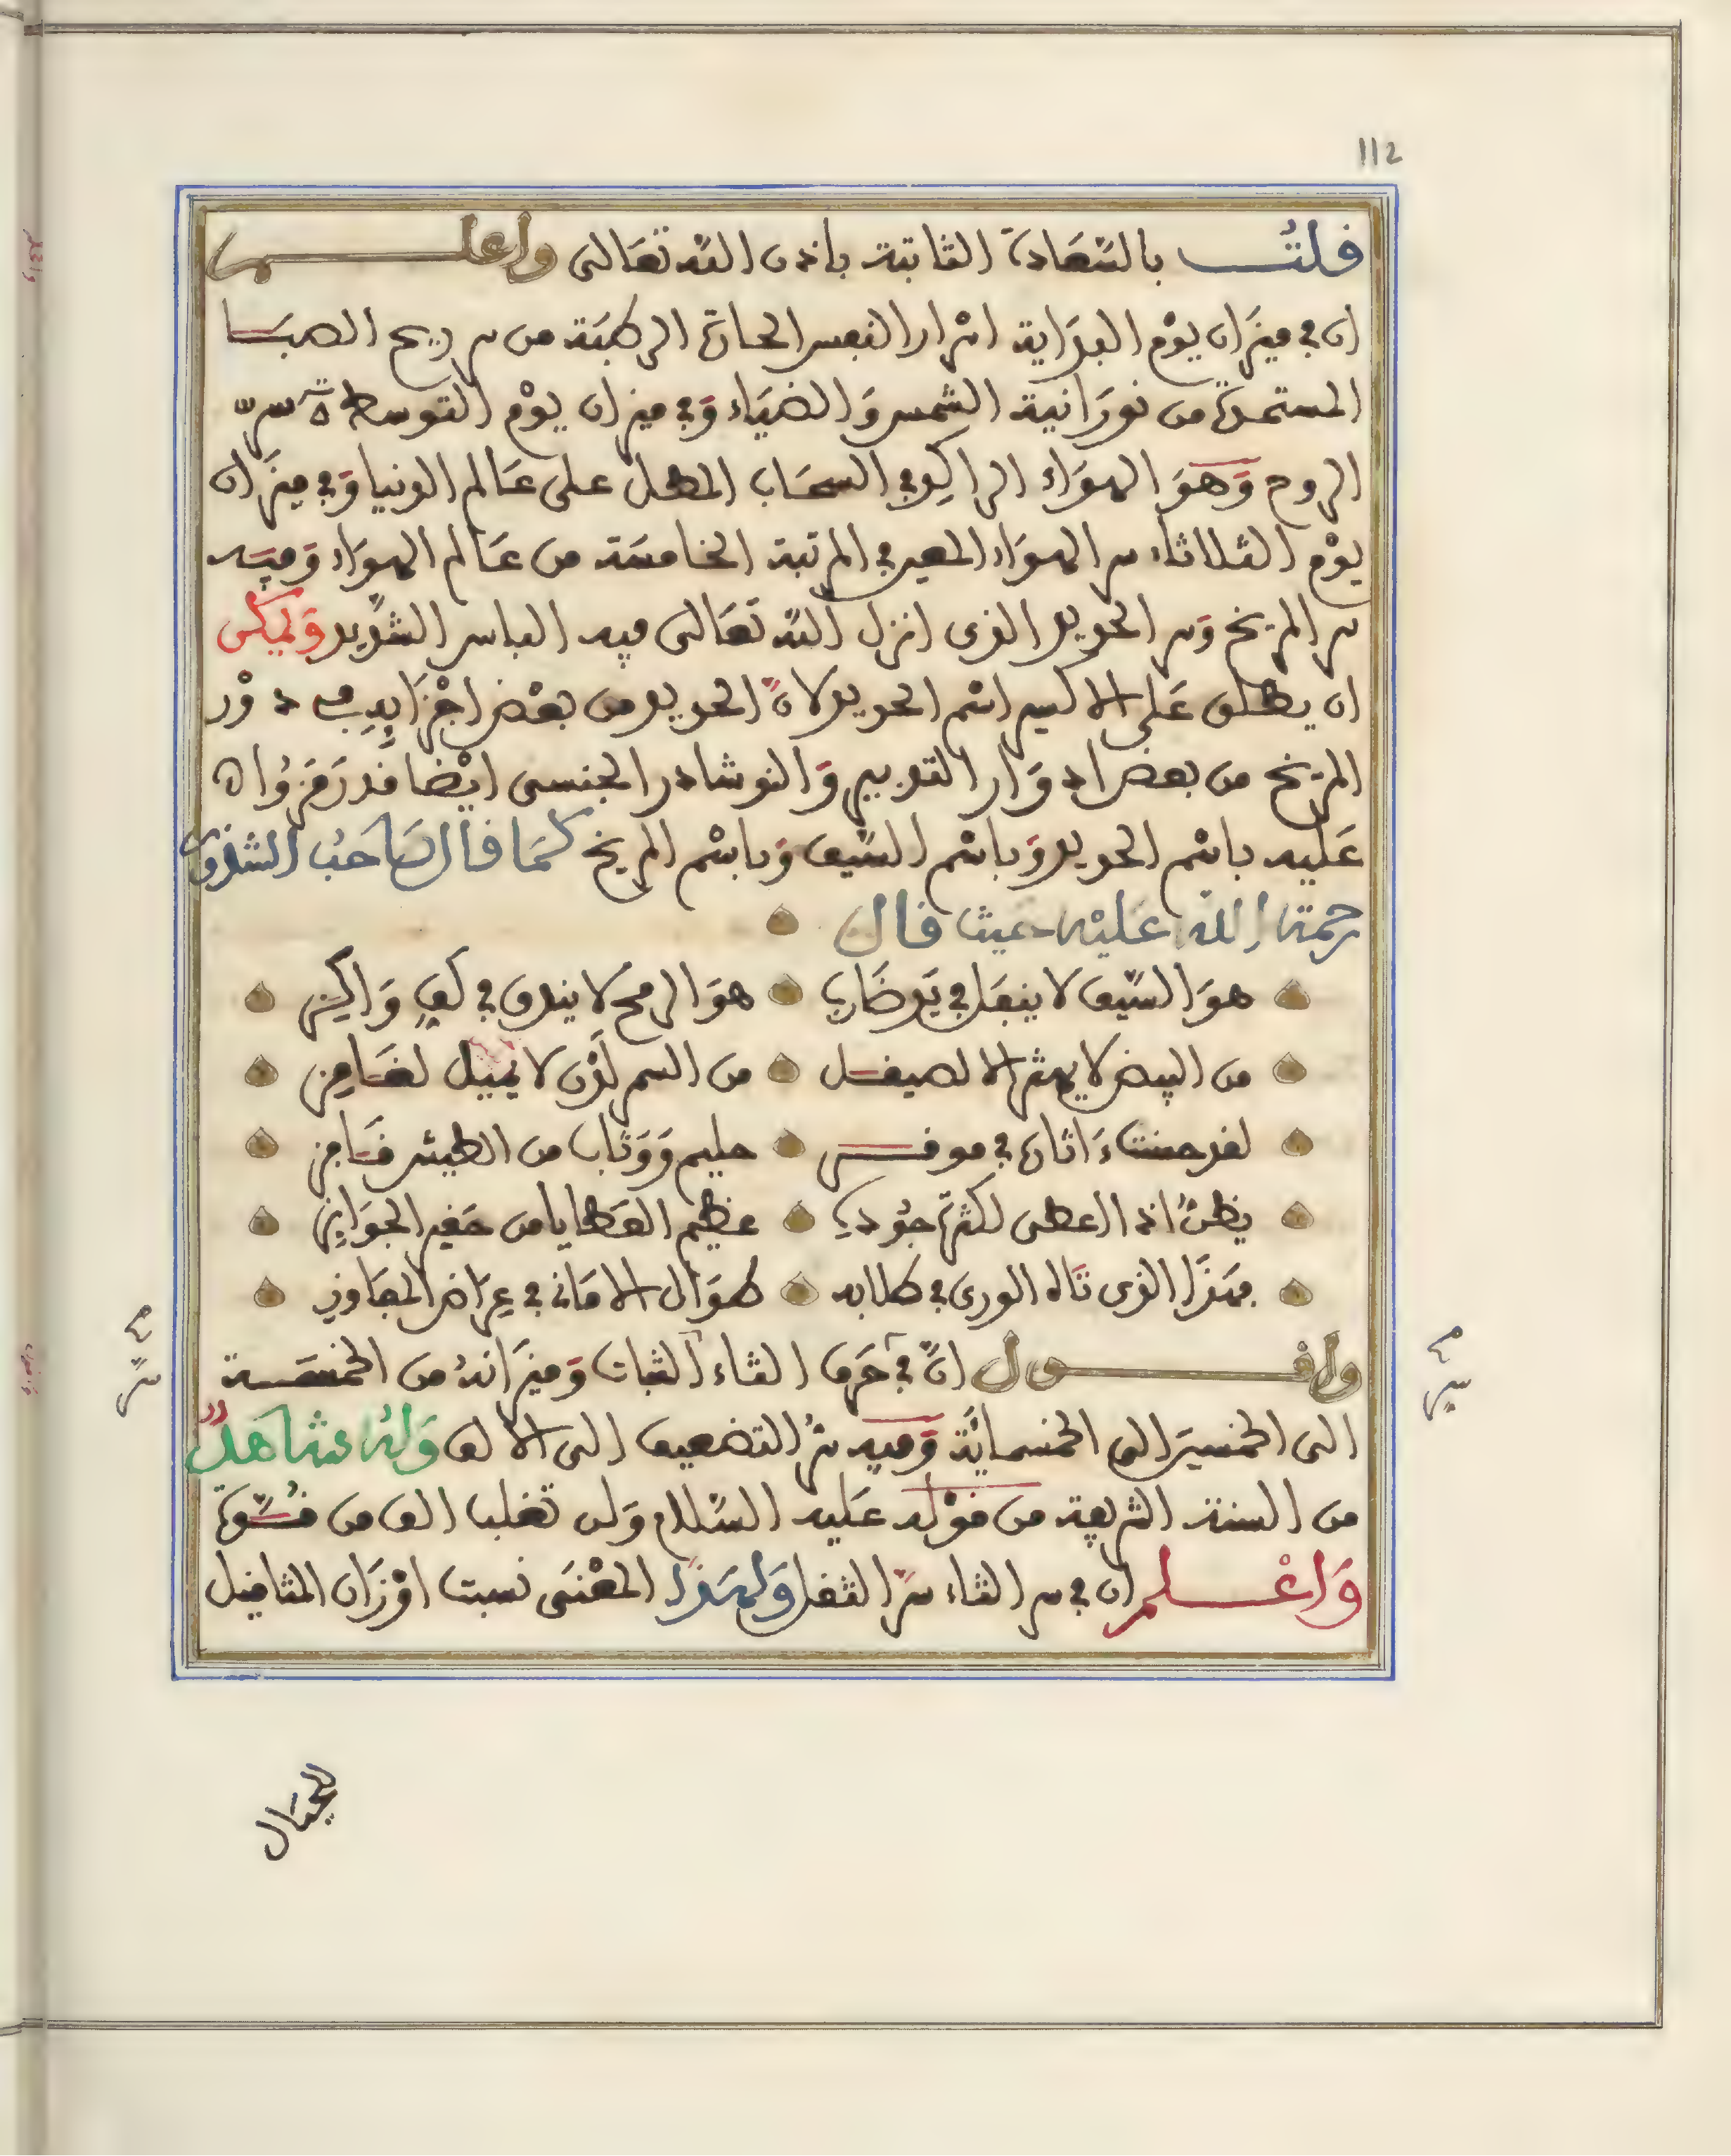 112
قلت بالسَّعَادة الثابتة باذن الله تعَالى واعلم
ان في ميزَان يوْم البدَاية اسْرار النفس الحارة الرطبَة من سر ريح الصبَا
المستمدة من نورَانية الشمس وَالضيَاء وَفي ميزان يوْم التوسط سرّ
الروح وَهوَ الهوَاء الراكد في السحَاب المطل على عَالم الدنيا وَفي ميزَان
يوْم الثلاثاء سر الهوَاء المعين في المرتبة الخامسَة من عَالم الهوَاء وَفيه
سر المريخ وَسر الحديد الذى انزل الله تعَالى فيه الباس الشدِيد وَيمكن
ان يطلق عَلى الاكسير اسْم الحديد لانَّ الحديد من بعْض اجْزَايِهِ في دوْر
المريخ من بعض ادوَار التدبير وَالنوشادر الجنسى ايْضا قد رَمَزُوا
عَليه باسْم الحديد وَباسْم السَّيف وَباسْم المريخ كمَا قال صَاحبُ الشذور
رحمَة الله عَليْه حَيث قال
هوَ السَّيف لا ينفَك في يَد ضَاربٍ هوَ الرمح لا يندق في كفِ وَاكِز
من البيض لا يهتز الا لصيقل من السمر لَدْن لا يَميل لغَامِز
لقد حسنت اثاره في موقف حليم وَوَثاب من الطيش قَافِز
يظنُّ اذا اعطى لكثرة جُودهِ عظيم العَطايا من حَقير الجوَايز
فهَذَا الذى تَاه الورى في طلابه طوَال الامَاني في عِرَاض المفَاوز
واقول انَّ في حَرف الثاء الثبات وَميزَانهُ من الخمسَة
الى الخمسِين الى الخمسمائَة وَفيه سرُّ التضعيف الى الالف وَلهُ شاهدٌ
من السنة الشريفة من قوْله عَليه السَّلام وَلن تغلب الف من قِلّة
وَاعْلم ان في سر الثاء سرَّ الثقل وَلهَذَا المعْنَى نسبت اوْزَان المثاقيل
للجبَال